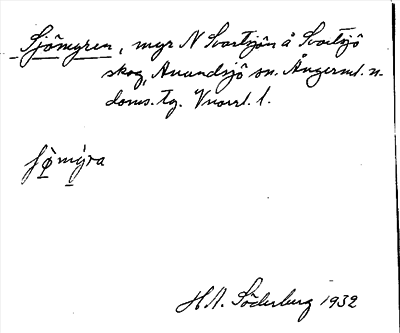 Sjömyren, myr N Svartsjön å Svartsjö
skog, Anundsjö sn. Ångerml. n.
doms. tg. Vnorrl. l.
fø̀ mýra
H.A. Söderberg 1932